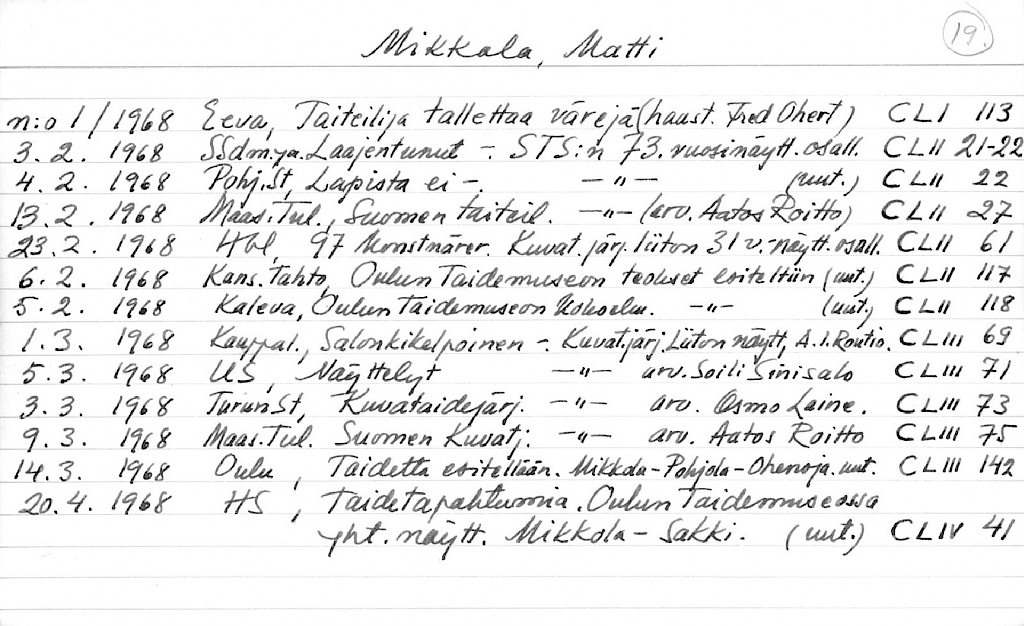 19.
Mikkola, Matti
n:o 1/1968 Eeva, Taiteilija tallettaa värejä (haast. Fred Ohert) CLI 113
3.2. 1968 SSdm.ya. Laajentunut -. STS:n 73. vuosinäytt. osall. CLII 21-22
4.2. 1968 Pohj.St, Lapista ei -. -"- (uut.) CLII 22
13.2. 1968 Maas.Tul., Suomen taiteil. -"- (arv. Aatos Roitto) CLII 27
23.2. 1968 Hbl, 97 konstnärer. Kuvat.järj.liiton 31 v. näytt. osall. CLII 61
6.2. 1968 Kans.Tahto, Oulun Taidemuseon teokset esiteltiin (uut.) CLII 117
5.2. 1968 Kaleva, Oulun Taidemuseon kokoelm. -"- (uut.) CLII 118
1.3. 1968 Kauppal., Salonkikelpoinen -. Kuvat.järj.Liiton näytt, A.I. Routio. CLIII 69
5.3. 1968 US, Näyttelyt -"- arv. Soili Sinisalo CLIII 71
3.3. 1968 TurunSt, Kuvataidejärj. -"- arv. Osmo Laine. CLIII 73
9.3. 1968 Maas.Tul. Suomen Kuvatj. -"- arv. Aatos Roitto CLIII 75
14.3. 1968 Oulu, Taidetta esitellään. Mikkola-Pohjola-Ohenoja. uut. CLIII 142
20.4. 1968 HS, Taidetapahtumia. Oulun Taidemuseossa
yht. näytt. Mikkola-Sakki. (uut.) CLIV 41